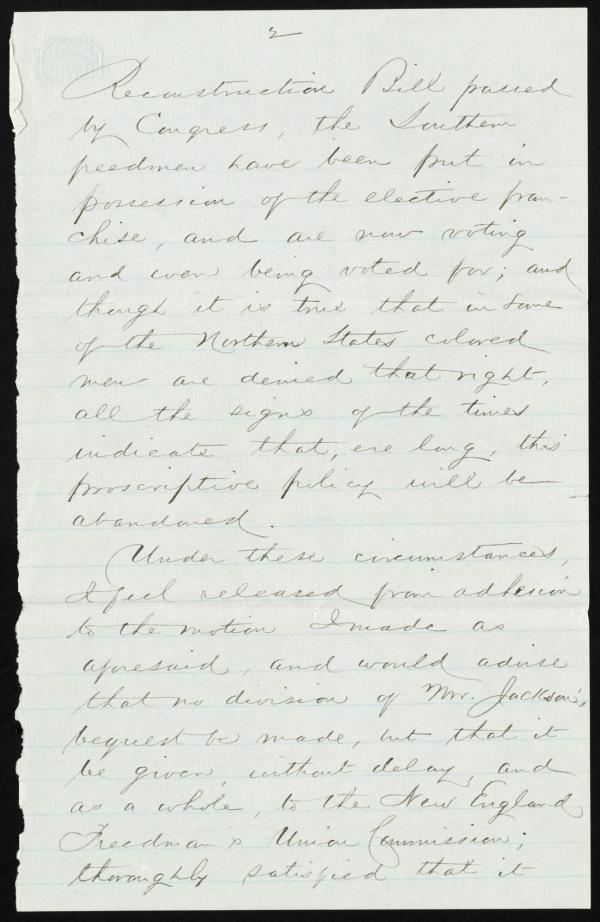 2
Reconstruction Bill passed
by Congress, the Southern
freedmen have been put in
possession of the elective fran-
chise, and are now voting
and even being voted for; and
though it is true that in some
of the Northern States colored
men are denied that right,
all the signs of the times
indicate that, ere long, this
proscriptive policy will be
abandoned.
Under these circumstances,
I feel released from adhesion
to the motion I made as
aforesaid, and would advise
that no division of Mr. Jackson's
bequest be made, but that it
be given, without delay, and
as a whole, to the New England
Freedman's Union Commission;
thoroughly satisfied that it